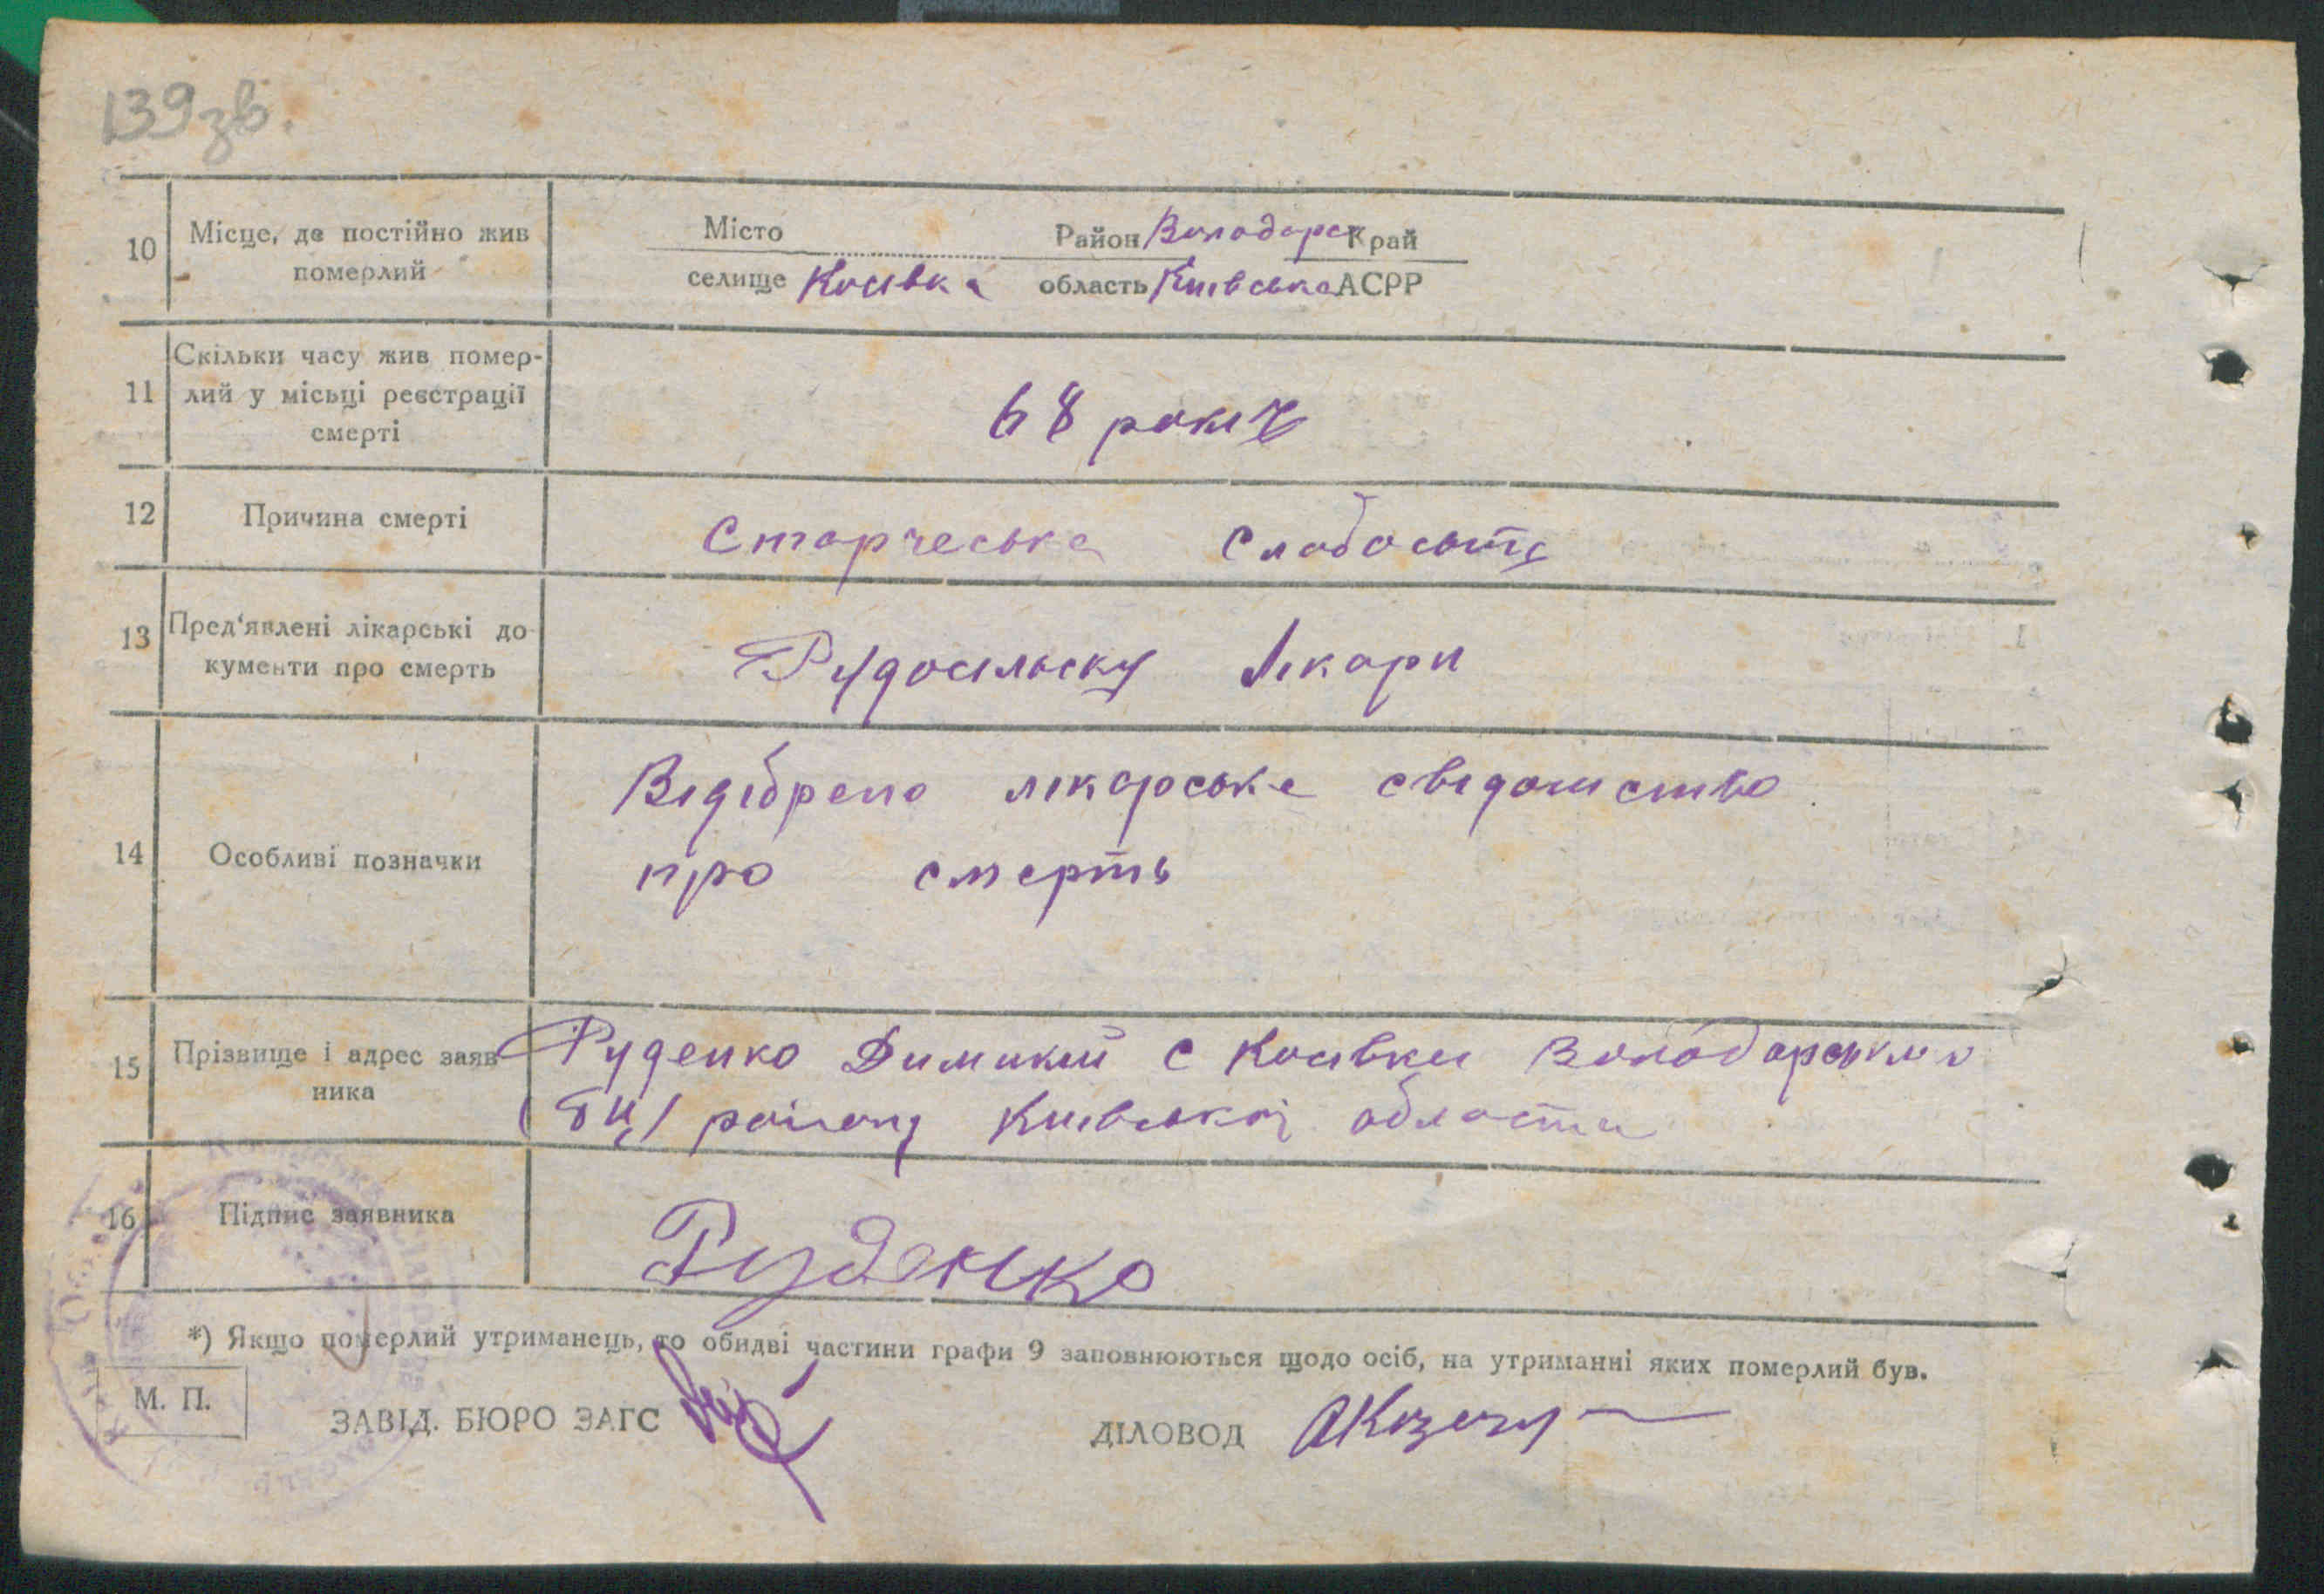 139 зв.
10 Місце, де постійно жив померлий
Місто
Район Володарск Край
селище Косівка область Київська АСРР
11 Скільки часу жив помер-
лий у місьці реєстрації
смерті
68 років
12 Причина смерті
Старческа слабость
13 Пред'явлені лікарські до-
кументи про смерть
Рудосильску лікари
14 Особливі позначки
Відібрено лікарське свідоицство
про смерть
15 Прізвище і адрес заяв-
ника
Руденко с Косівки Володарського
району Київської области
16 Підпис заявника
Руденко
*) Якщо померлий утриманець, то обидві частини графи 9 заповнюються щодо осіб, на утриманні яких померлий був.
М. П.
ЗАВІД. БЮРО ЗАГС
ДІЛОВОД